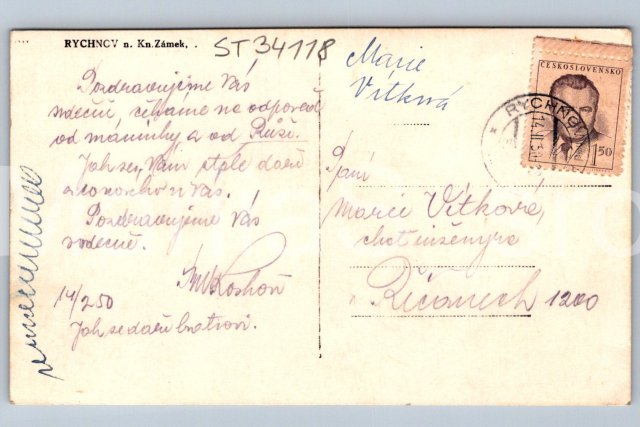 RYCHNOV n. Kn. Zámek, .
ST34118
Marie
Vítková
ČESKOSLOVENSKO
1.50
RYCHNOV
14.II.50
Pozdravujeme Vás
srdečně, čekáme na odpověď
od maminky a od Růži.
Jak se Vám stále daří
a co nového u Vás.
Pozdravujeme Vás
srdečně.
14/2 50
Jak se daří bratrovi.
Paní
Marie Vítková,
Říčanech 1200